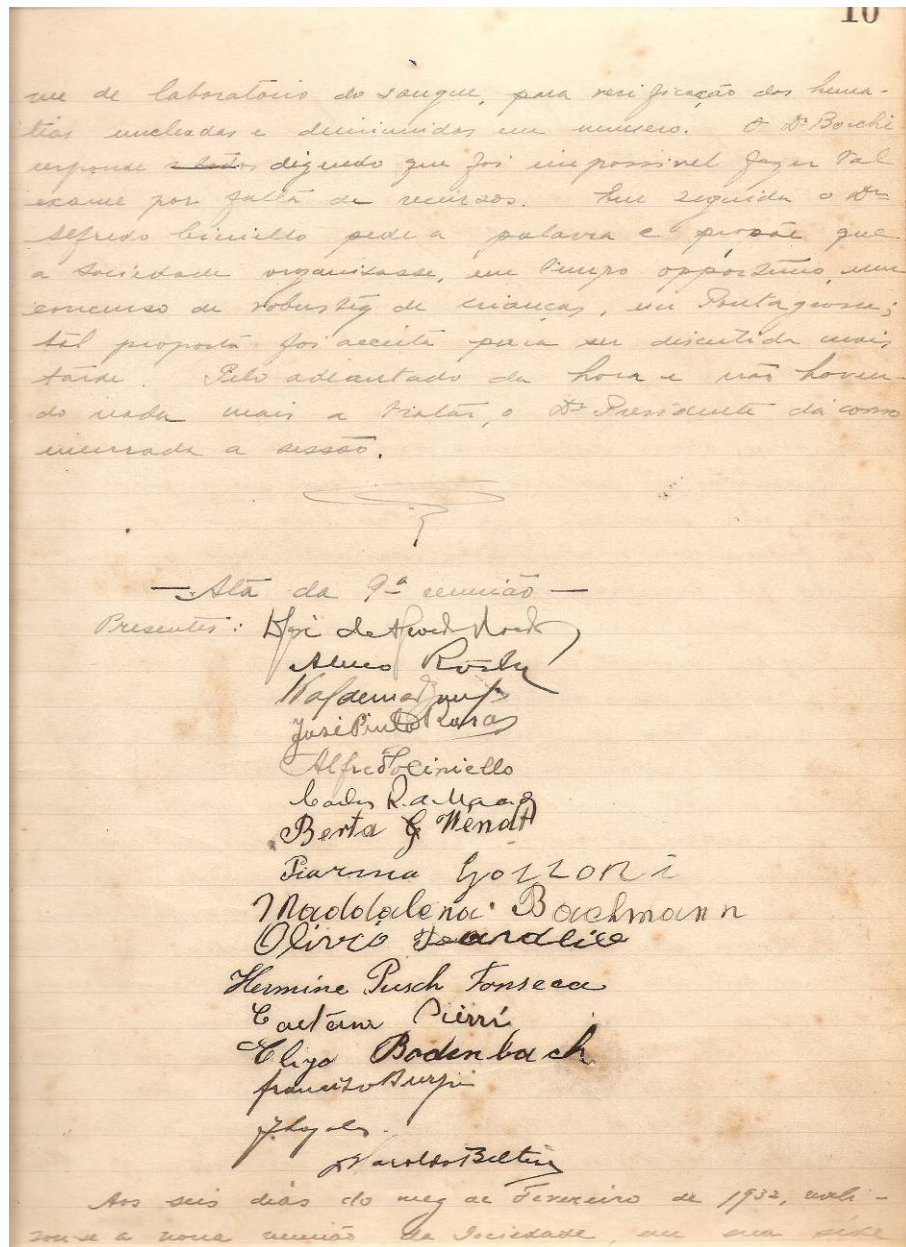 10
me de laboratorio do sangue, para verificação das hema-
tias nucleadas e diminuidas em numero. O Dr Bocchi
responde dizendo que foi impossivel fazer tal
exame por falta de recursos. Em seguida o Dr
Alfredo Ciniello pede a palavra e propõe que
a Sociedade organisasse, em tempo opportuno, um
concurso de robustez de crianças, em Ponta grossa;
tal proposta foi acceita para ser discutida mais
tarde. Pelo adeantado da hora e não haven-
do nada mais a tratar, o Dr Presidente dá como
encerrada a sessão.
— Ata da 9ª reunião —
Presentes: José de Azevedo
José Pinto Rosas
Alfredo Ciniello
Carlos R. de Macedo
Berta G Wendt
Gozzoni
Maddalena Bachmann
Olivio
Hermine Pusch Fonseca
Caetano Pierri
Elyo Bodenbach
Francisco Burzio
Haroldo Beltrão
Aos seis dias do mez de Fevereiro de 1932, reali-
sou-se a nona reunião da Sociedade, em sua séde